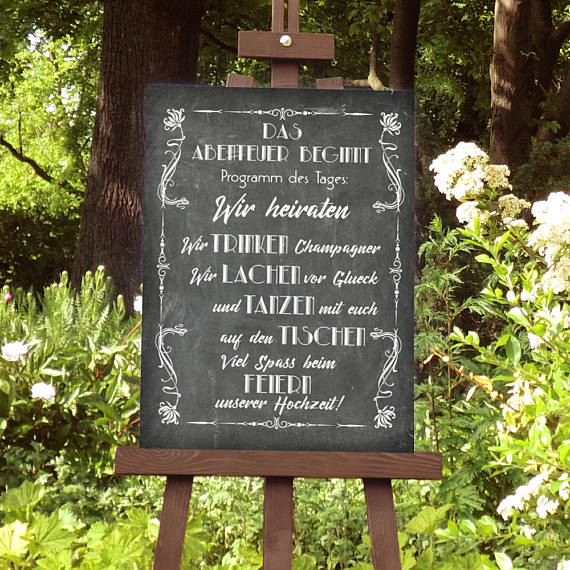 DAS
ABENTEUER BEGINNT
Programm des Tages:
Wir heiraten
Wir TRINKEN Champagner
Wir LACHEN vor Glueck
und TANZEN mit euch
auf den TISCHEN
Viel Spass beim
FEIERN
unserer Hochzeit!